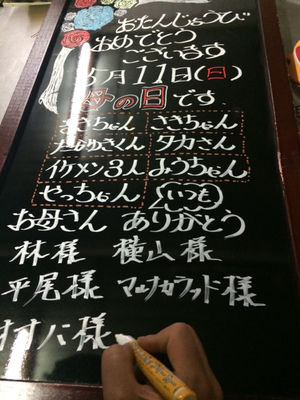 おたんじょうび
おめでとう
ございます
5月11日(日)
母の日です
まさちゃん ささちゃん
タカさん
イケメン3人 ようちゃん
やっちゃん いつも
お母さん ありがとう
林様 横山様
平尾様 様
様